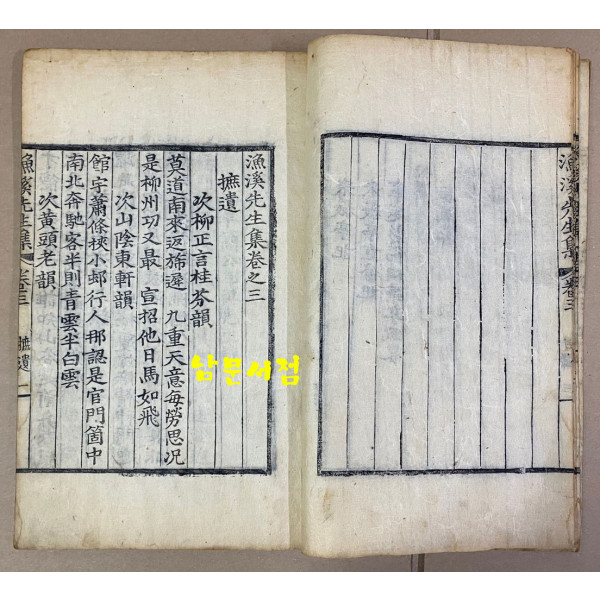 漁溪先生集 卷三
漁溪先生集卷之三
摭遺
次柳正言桂芬韻
莫道南來返旆遲 九重天意每勞思況
是柳州功又最 宣招他日馬如飛
次山陰東軒韻
館宇蕭條挾小邨行人那認是官門箇中
南北奔馳客半則青雲半白雲
次黃頭老韻
漁溪先生集 卷三 摭遺 一
남문서점